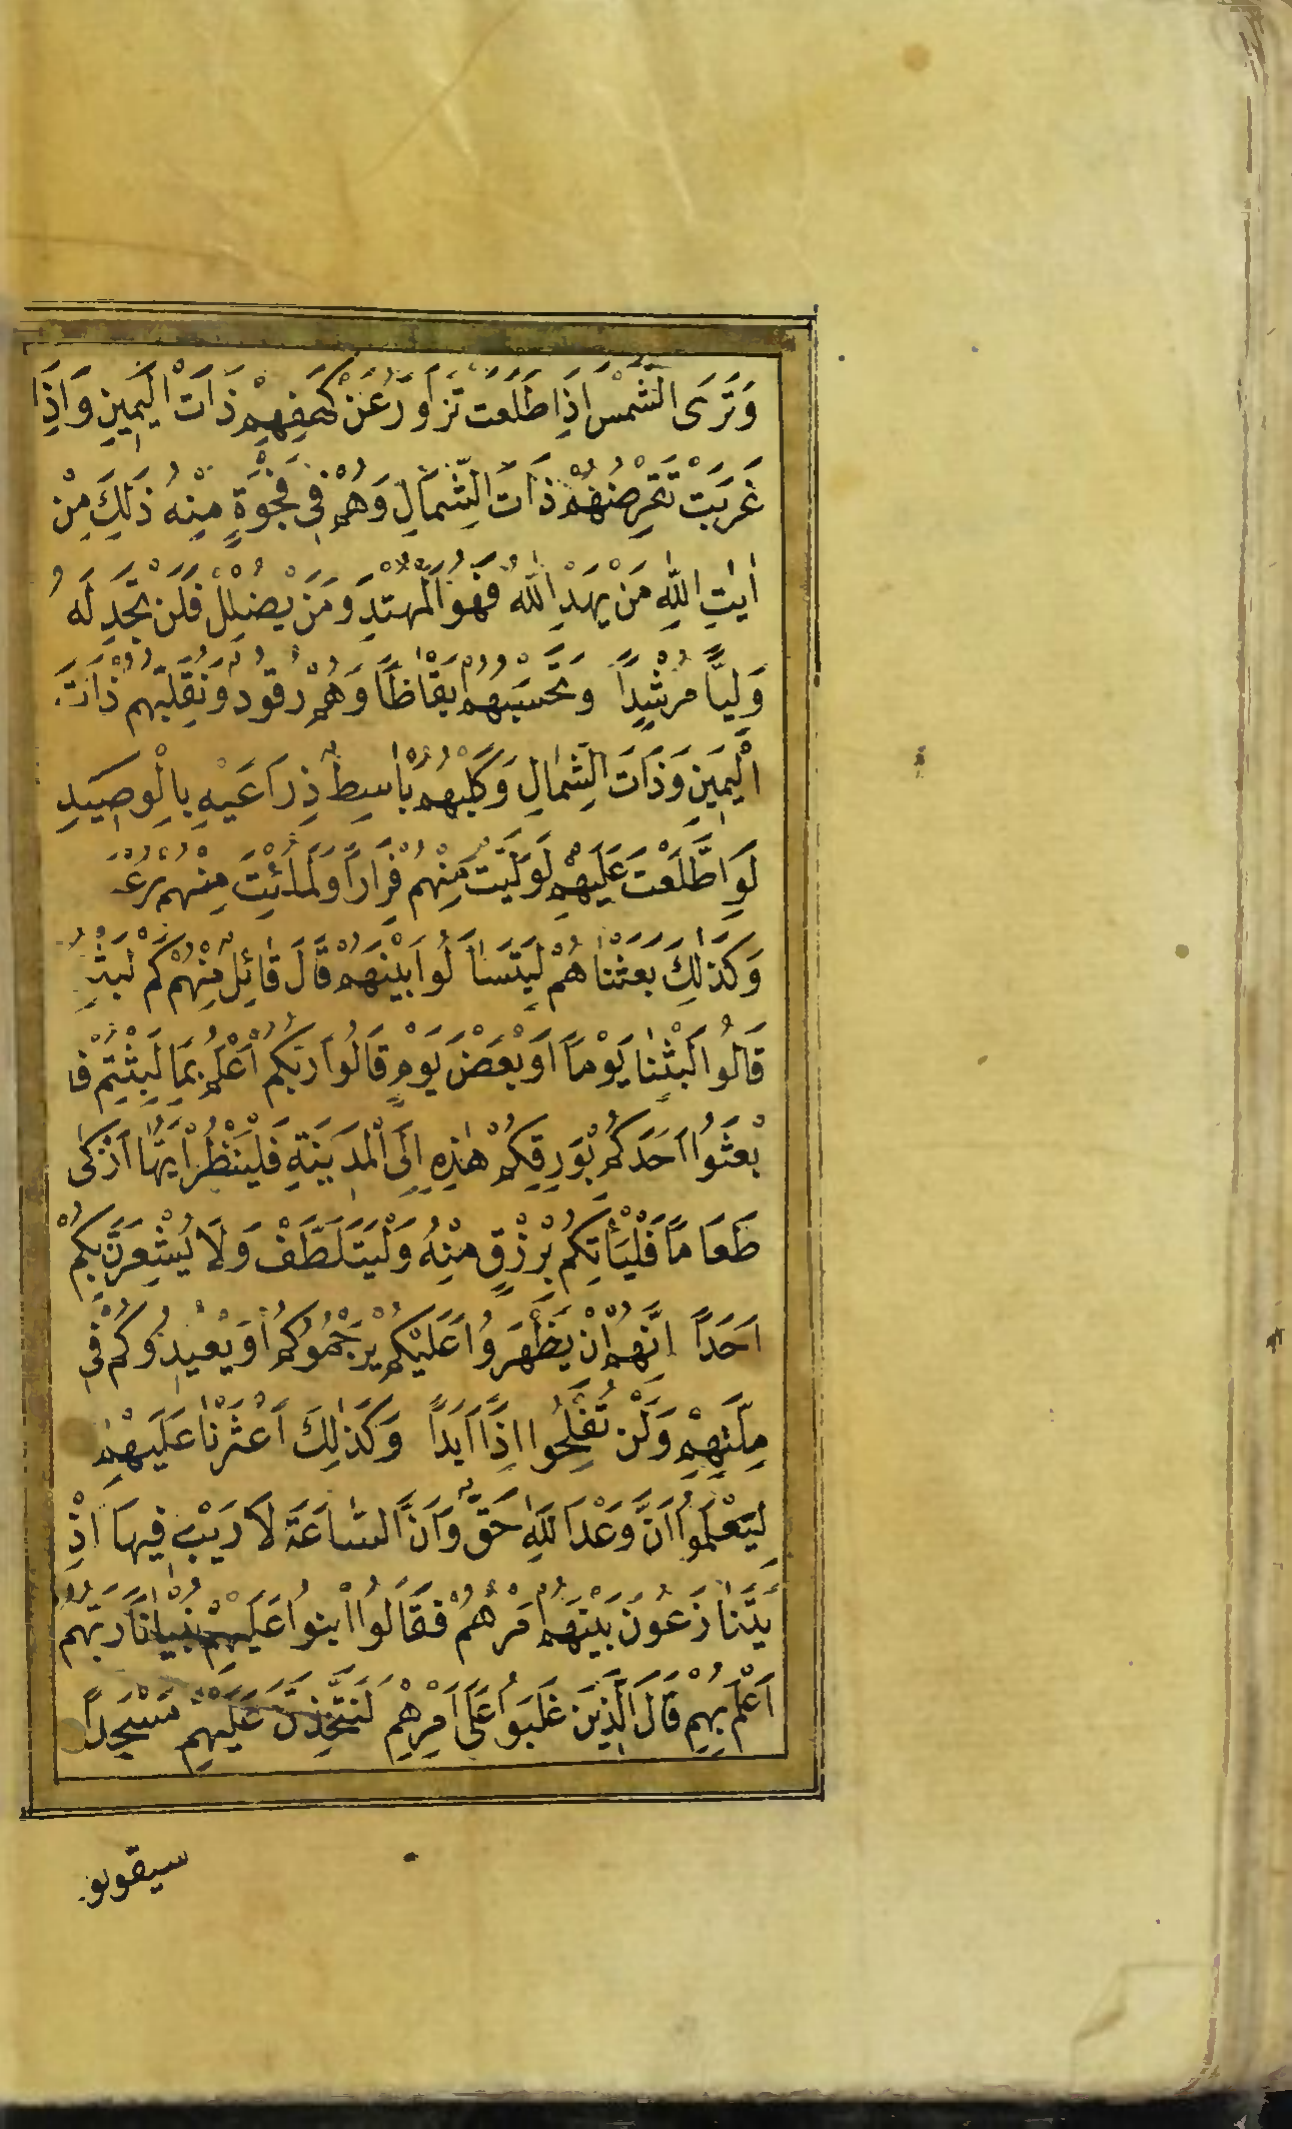 وَتَرَى الشَّمْسَ اِذَا طَلَعَتْ تَزَاوَرُ عَنْ كَهْفِهِمْ ذَاتَ الْيَمِينِ وَاِذَا
غَرَبَتْ تَقْرِضُهُمْ ذَاتَ الشِّمَالِ وَهُمْ فِى فَجْوَةٍ مِنْهُ ذٰلِكَ مِنْ
اٰيٰتِ اللّٰهِ مَنْ يَهْدِ اللّٰهُ فَهُوَ الْمُهْتَدِ وَمَنْ يُضْلِلْ فَلَنْ تَجِدَ لَهُ
وَلِيًّا مُرْشِدًا وَتَحْسَبُهُمْ اَيْقَاظًا وَهُمْ رُقُودٌ وَنُقَلِّبُهُمْ ذَاتَ
الْيَمِينِ وَذَاتَ الشِّمَالِ وَكَلْبُهُمْ بَاسِطٌ ذِرَاعَيْهِ بِالْوَصِيدِ
لَوِ اطَّلَعْتَ عَلَيْهِمْ لَوَلَّيْتَ مِنْهُمْ فِرَارًا وَلَمُلِئْتَ مِنْهُمْ
وَكَذٰلِكَ بَعَثْنَاهُمْ لِيَتَسَاۤلُوا بَيْنَهُمْ قَالَ قَائِلٌ مِنْهُمْ كَمْ
قَالُوا لَبِثْنَا يَوْمًا اَوْ بَعْضَ يَوْمٍ قَالُوا رَبُّكُمْ اَعْلَمُ بِمَا لَبِثْتُمْ فَا
بْعَثُوا اَحَدَكُمْ بِوَرِقِكُمْ هٰذِهِ اِلَى الْمَدِينَةِ فَلْيَنْظُرْ اَيُّهَا اَزْكٰى
طَعَامًا فَلْيَأْتِكُمْ بِرِزْقٍ مِنْهُ وَلْيَتَلَطَّفْ وَلَا يُشْعِرَنَّ بِكُمْ
اَحَدًا اِنَّهُمْ اِنْ يَظْهَرُوا عَلَيْكُمْ يَرْجُمُوكُمْ اَوْ يُعِيدُوكُمْ فِى
مِلَّتِهِمْ وَلَنْ تُفْلِحُوا اِذًا اَبَدًا وَكَذٰلِكَ اَعْثَرْنَا عَلَيْهِمْ
لِيَعْلَمُوا اَنَّ وَعْدَ اللّٰهِ حَقٌّ وَاَنَّ السَّاعَةَ لَا رَيْبَ فِيهَا اِذْ
يَتَنَازَعُونَ بَيْنَهُمْ اَمْرَهُمْ فَقَالُوا ابْنُوا عَلَيْهِمْ بُنْيَانًا رَبُّهُمْ
اَعْلَمُ بِهِمْ قَالَ الَّذِينَ غَلَبُوا عَلَى اَمْرِهِمْ لَنَتَّخِذَنَّ عَلَيْهِمْ مَسْجِدًا
سيقولو